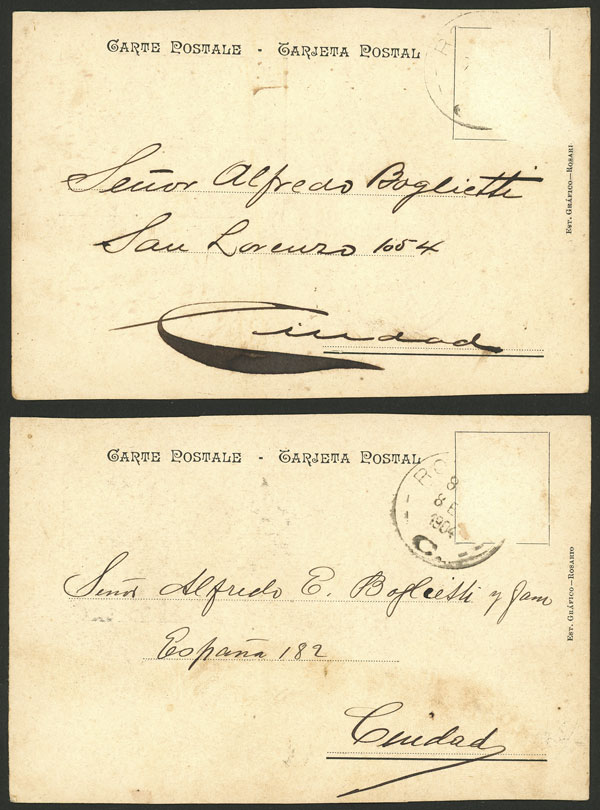 CARTE POSTALE - TARJETA POSTAL
R
EST. GRÁFICO—ROSARI
Señor Alfredo Boglietti
San Lorenzo 1054
Ciudad
CARTE POSTALE - TARJETA POSTAL
RO
8
8 E
1904
C.
EST. GRÁFICO—ROSARIO
Señor Alfredo E. Boglietti y fam
España 182
Ciudad